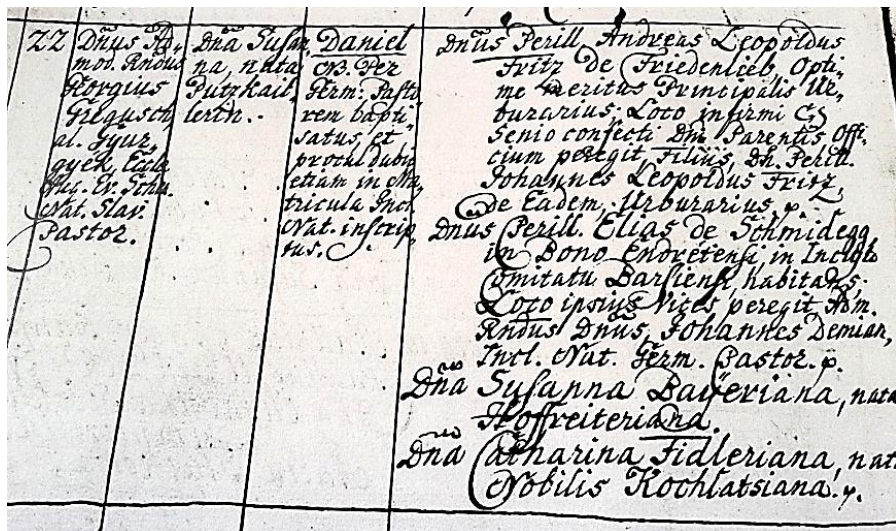 22
Dnus Ad-
mod. Rndus
Georgius
Gregusch,
al. Gyur-
gyek, Eccle
Aug. Ev. Scha.
Nat. Slav.
Pastor.
Dna Susan
na, nata
Putzkail-
lerin.
Daniel
NB. Per
Germ. Pasto
rem bapti-
satus, et
procul dubio
etiam in Ma-
tricula Incl.
Nat. inscrip-
tus.
Dnus Perill. Andreas Leopoldus
Fritz de Friedenlieb, Opti-
me meritus Principalis Ur-
burarius; Loco infirmi &
Senio confecti Dni Parentis Offi-
cium peregit Filius, Dn. Perill.
Johannes Leopoldus Fritz,
de Eadem, Urburarius. p.
Dnus Perill. Elias de Schmidegg
in Bono Endretensi, in Inclyto
Comitatu Barsiensi, habitans;
Loco ipsius Vices peregit, Adm.
Rndus Dnus, Johannes Demian,
Incl. Nat. Germ. Pastor. p.
Dna Susanna Bayeriana, nata
Hoffreiteriana.
Dna Catharina Fidleriana, nat
Nobilis Kochlatsiana. p.